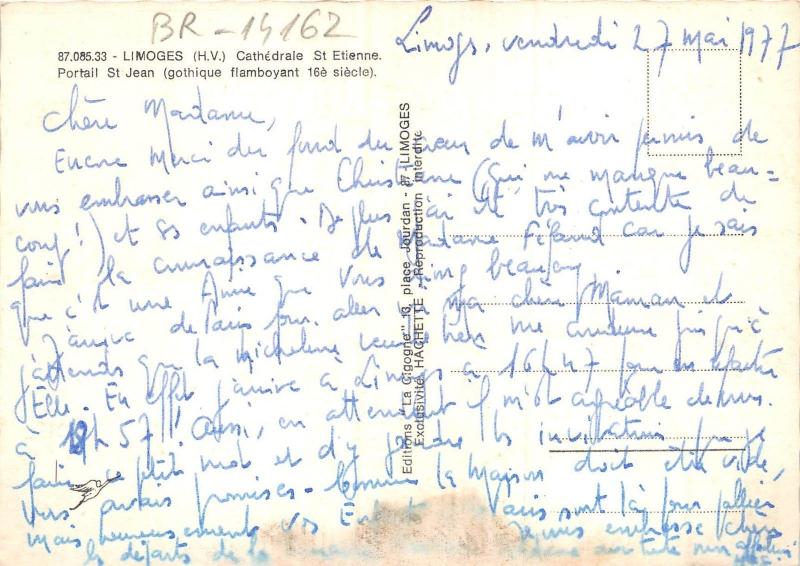 BR-14162
87.085.33 - LIMOGES (H.V.) Cathédrale St Etienne.
Portail St Jean (gothique flamboyant 16è siècle).
Limoges, vendredi 27 Mai 1977
Chère Madame,
Encore Merci du fond du cœur de m'avoir permis de
vous embrasser ainsi que Christiane (qui me manque beau=
coup!) et ses enfants. De plus j'ai été très contente de
faire la connaissance de Madame car je sais
que c'est une Amie que vous aimez beaucoup
J'arrive de Paris pour aller voir ma chère Maman et
j'attends que la micheline veuille bien me conduire jusqu'à
Elle. En effet j'arrive à Limoges à 16h47 pour en repartir
à 18h57!! Aussi, en attendant il m'est agréable de vous
faire ce petit mot et d'y joindre les invitations que je
vous avais promises. Comme la maison doit être vide,
mais heureusement vos Enfants Paris sont là pour pallier
les départs de la Je vous embrasse chère
Madame
Editions "La Cigogne" 13, place Jourdan - 87 - LIMOGES
Exclusivité HACHETTE - Reproduction interdite